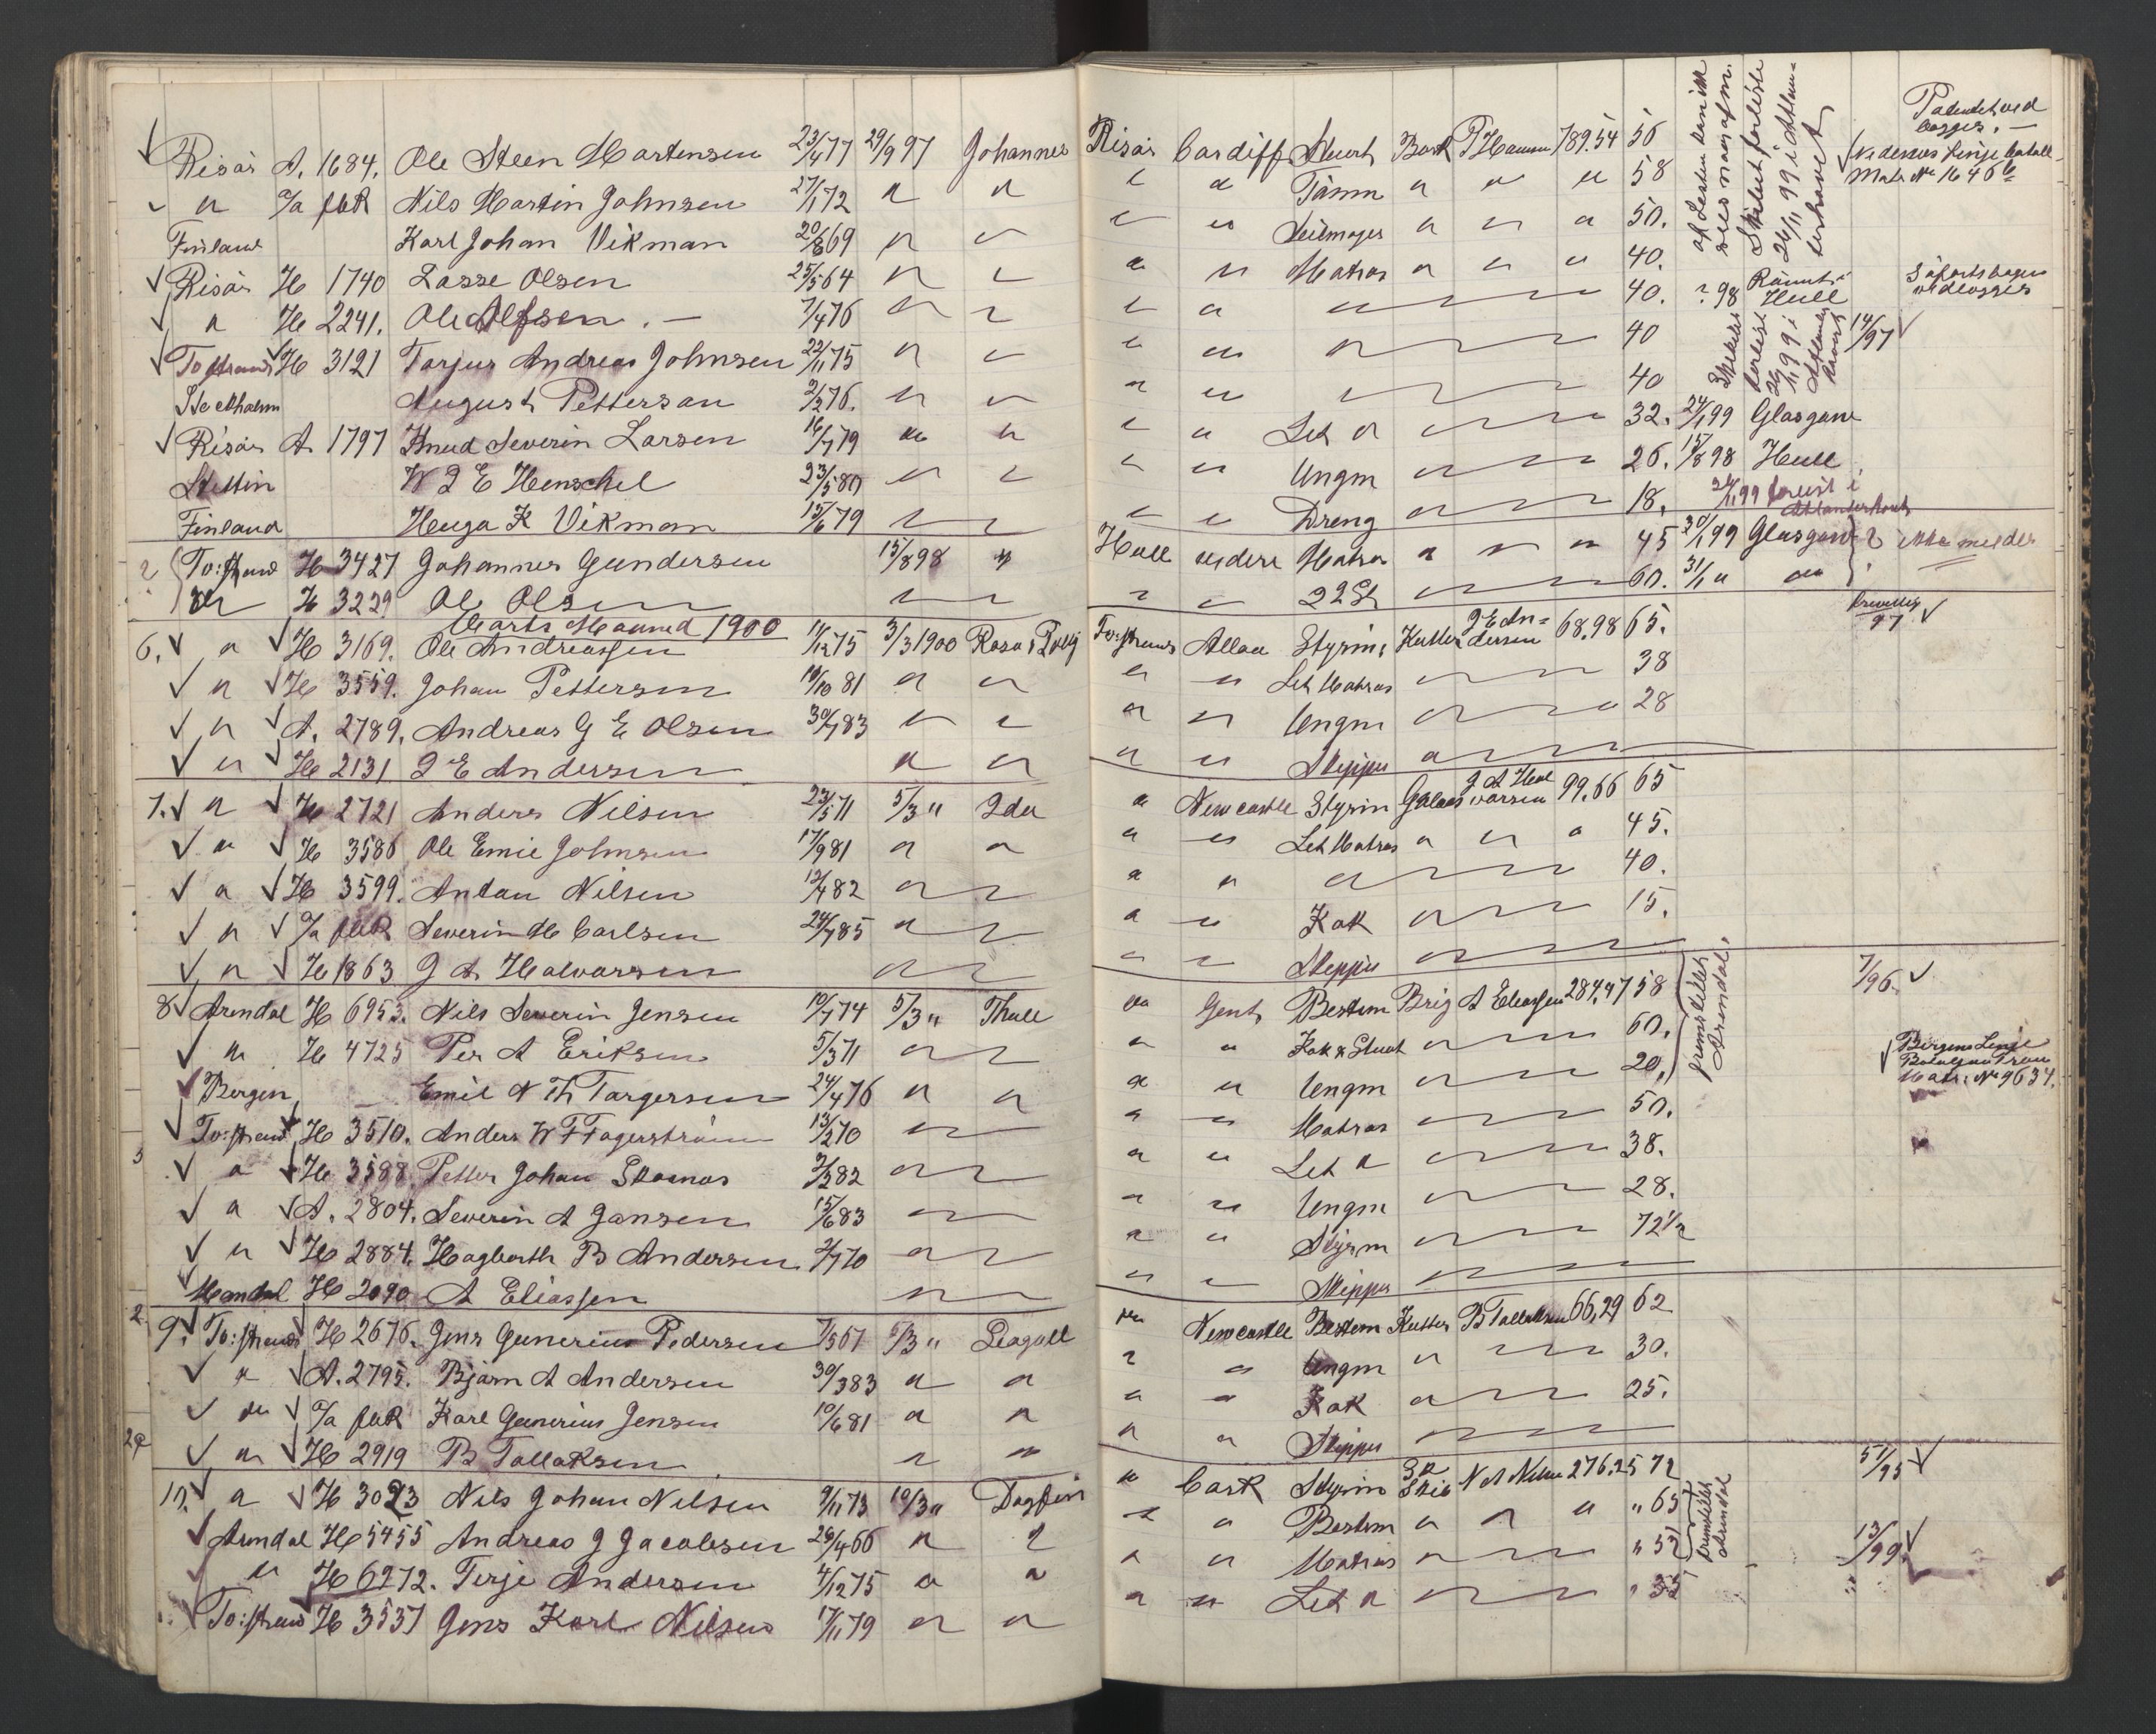 Risør A. 1684. Ole Steen Mortensen 23/4 77 29/9 97 Johannes Risør Cardiff Stuert Bark P Hansen 789.54 56
" T/a fol R Nils Martin Johnsen 27/1 72 " " " " Tømm " " " 58
Finland Karl Johan Vikman 20/8 69 " " " " Seilmager " " " 50.
Risør H 1740 Lasse Olsen 25/5 64 " " " " Matros " " " 40.
" H 2241. Ole Alfsen. — 7/4 76 " " " " " 40. ? 98 Rømt i Hull
To:strand H 3121 Tarjus Andreas Johnsen 22/11 75 " " " " " 40 14/97
Stockholm August Petterson 2/2 76. " " " " " 40
Risør A 1797 Knud Severin Larsen 16/7 79 " " " " Let " 32. 24/1 99 Glasgow
Stettin W J E Henschel 23/5 80 " " " " Ungm " 26. 15/8 98 Hull
Finland Hugo K Vikman 15/6 79 " " " " Dreng " 18. 26/11 99 forlist i Atlanterhavet
To:strand H 3427 Johannes Gundersen 15/8 98 " Hull videre Matros " " " 45 30/1 99 Glasgow ? ikke meldt
" H 3229 Ole Olsen " " " 2 St " 60. 31/1 " "
Marts Maaned 1900
6. " H 3169. Ole Andreassen 11/12 75 3/3 1900 Rosa To:strand Alloa Styrm. Kutter J E Andersen 68,98 65.
" H 3559. Johan Pettersen 10/10 81 " " " " Let Matros " 38
" A. 2789. Andreas G E Olsen 30/7 83 " " " " Ungm " 28
" H 2131 J E Andersen " " " " Skipper "
7. " H 2721 Anders Nilsen 23/5 71 5/3 " Ida " Newcastle Styrm Galeas J A Halvorsen 99,66 65
" H 3586 Ole Emil Johnsen 17/9 81 " " " " Let Matros " " " 45.
" H 3599. Anton Nilsen 12/4 82 " " " " " 40.
" T/a fol R Severin M Carlsen 24/7 85 " " " " Kok " 15.
" H 1863 J A Halvorsen " " " " Skipper "
8 Arendal H 6953. Nils Severin Jensen 10/7 74 5/3 " Thule " Gent Bestm Brig A Eliassen 284,47 58 7/96.
" H 4725 Per A Eriksen 5/3 71 " " " " Kok & Stuert " 60.
Bergen Emil N Th Torgersen 24/4 76 " " " " Ungm " 20.
To:strand H 3510. Anders W F Fagerstrøm 13/2 70 " " " " Matros " 50.
" H 3598. Petter Johan Skomos 2/2 82 " " " " Let " 38.
" A. 2804. Severin A Jansen 15/6 83 " " " " Ungm " 28.
" H 2884. Hagbarth B Andersen 2/7 70 " " " " Styrm " 72 1/2
Mandal H 2090 A Eliassen " " " " Skipper "
9. To:strand H 2676. Jens Gunerius Pedersen 7/5 67 5/3 " Seagull " Newcastle Bestm Kutter B Tallaksen 66,29 62
" A. 2795. Bjørn A Andersen 30/3 83 " " " " Ungm " 30.
" T/a fol R Karl Gunerius Jensen 10/6 81 " " " " Kok " 25.
" H 2919 B Tallaksen " " " " Skipper "
10. " H 3023 Nils Johan Nilsen 9/11 73 10/3 " Dagfin " Cork Styrm N A Nilsen 276,25 72
Arendal H 5455 Andreas J Jacobsen 26/4 66 " " " " Bestm " " " " 65
" H 6272. Terje Andersen 4/12 75 " " " " Matros " " 52 13/99.
To:strand H 3537 Jens Karl Nilsen 17/11 79 " " " " Let " " 35
Skibet forlist 26/11 99 i Atlanterhavet
Skibet forlist 26/11 99 i Atlanterhavet
Patentet vedlægges. —
Matr No 1646 6
Bergens Linje
Matr. No 9634.
fremstillet Arendal.
fremstillet Arendal